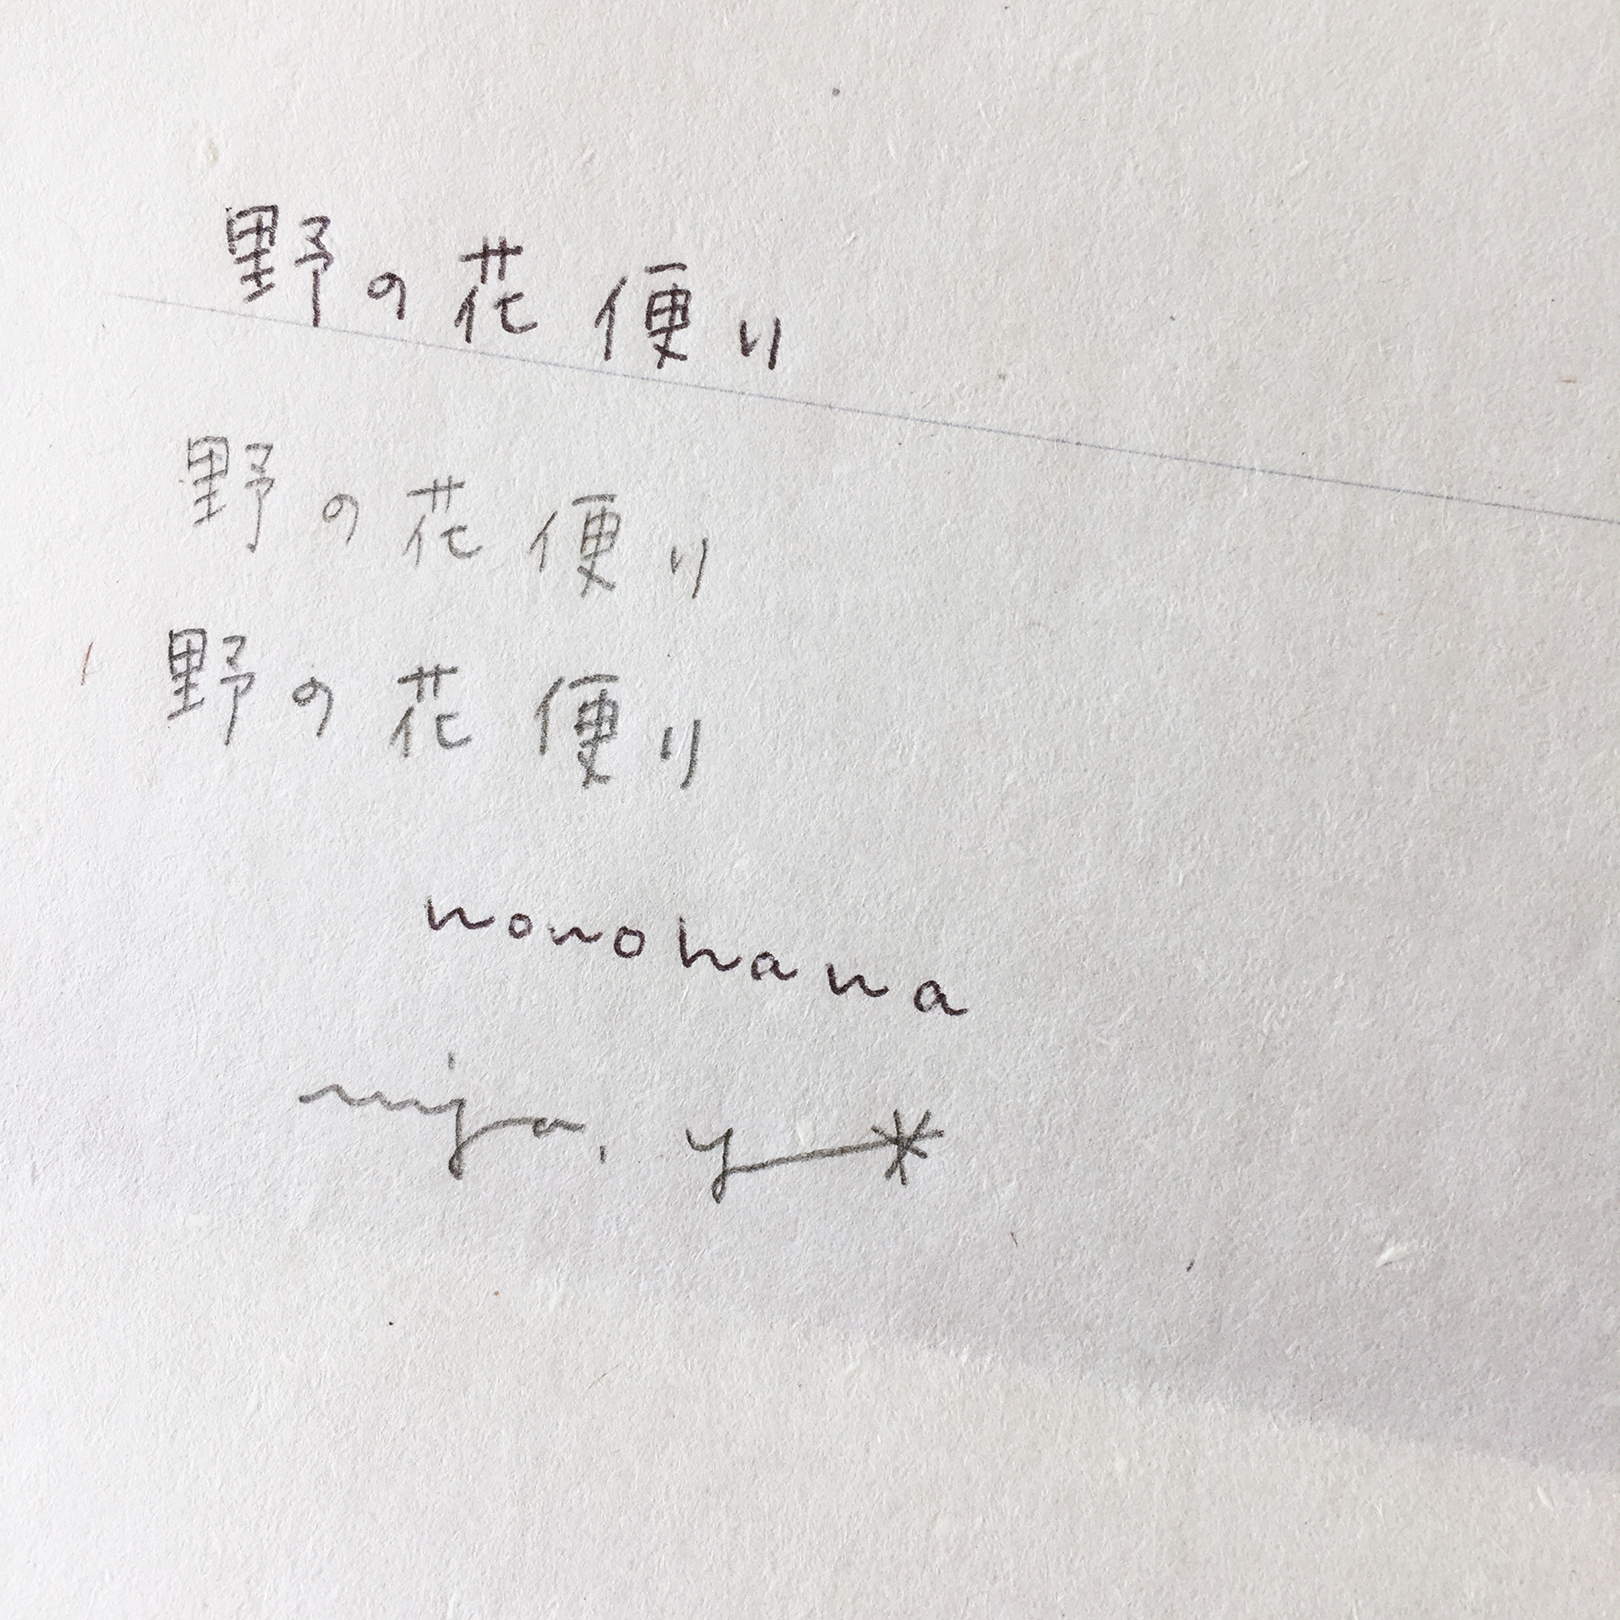 野の花便り
野の花便り
野の花便り
nonohana
miya, y